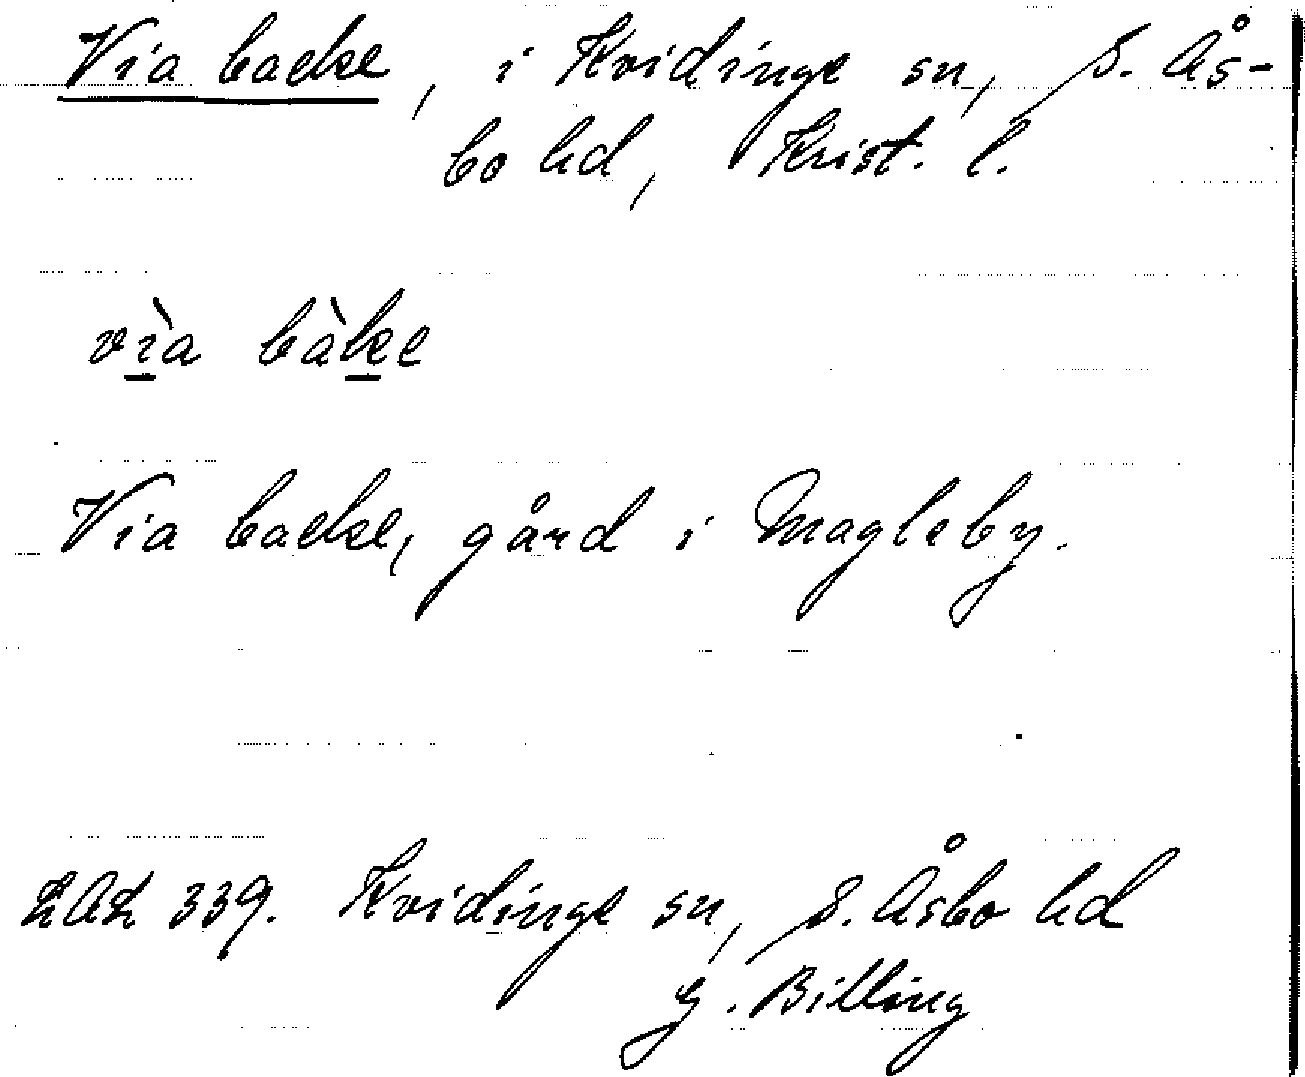 Via backe, i Kvidinge sn, S. Ås-
bo hd, Krist. l.
vìa bàke
Via backe, gård i Magleby.
LAL 339. Kvidinge sn, S. Åsbo hd
G. Billing